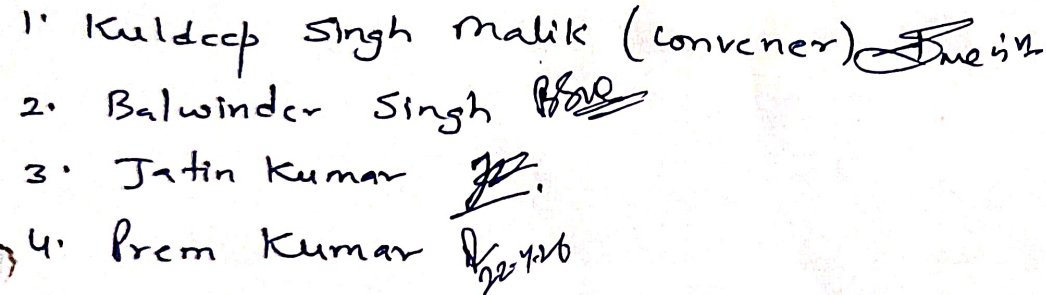 1. Kuldeep Singh Malik (convener)
2. Balwinder Singh
3. Jatin Kumar
4. Prem Kumar